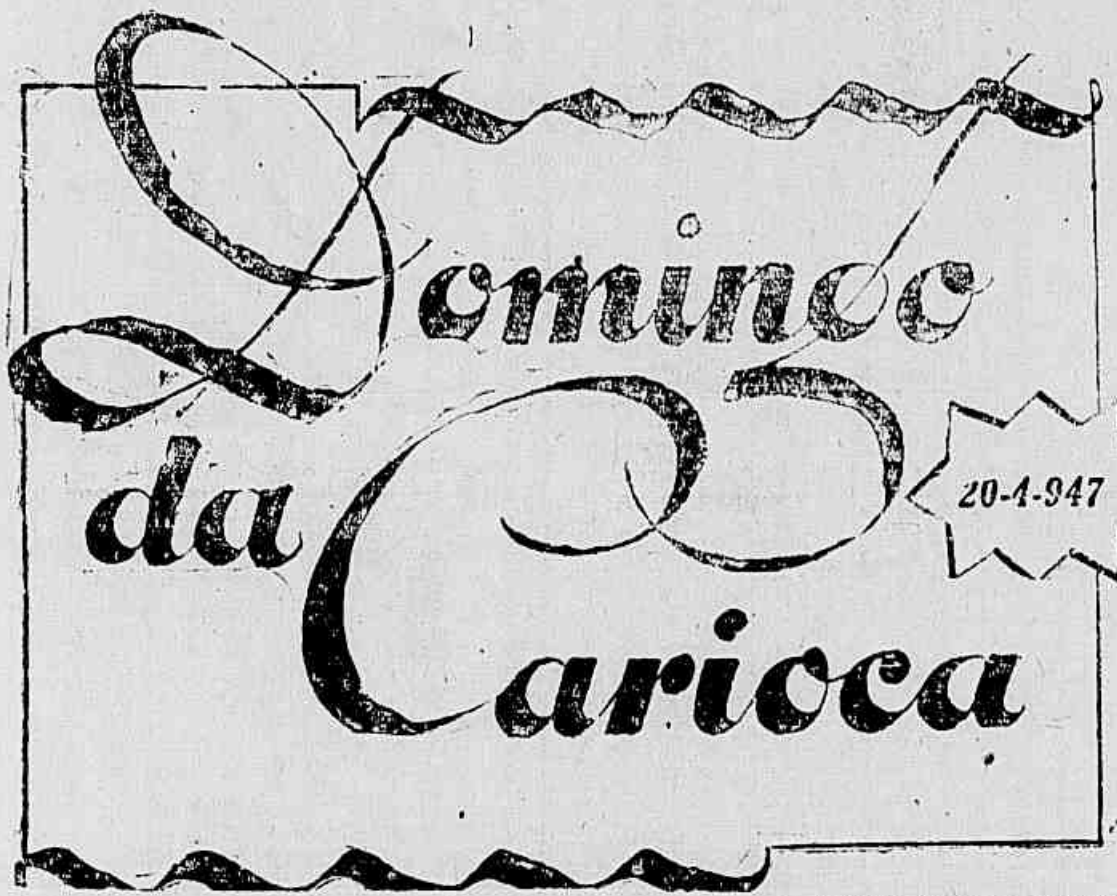 Domingo
da
Carioca
20-4-947